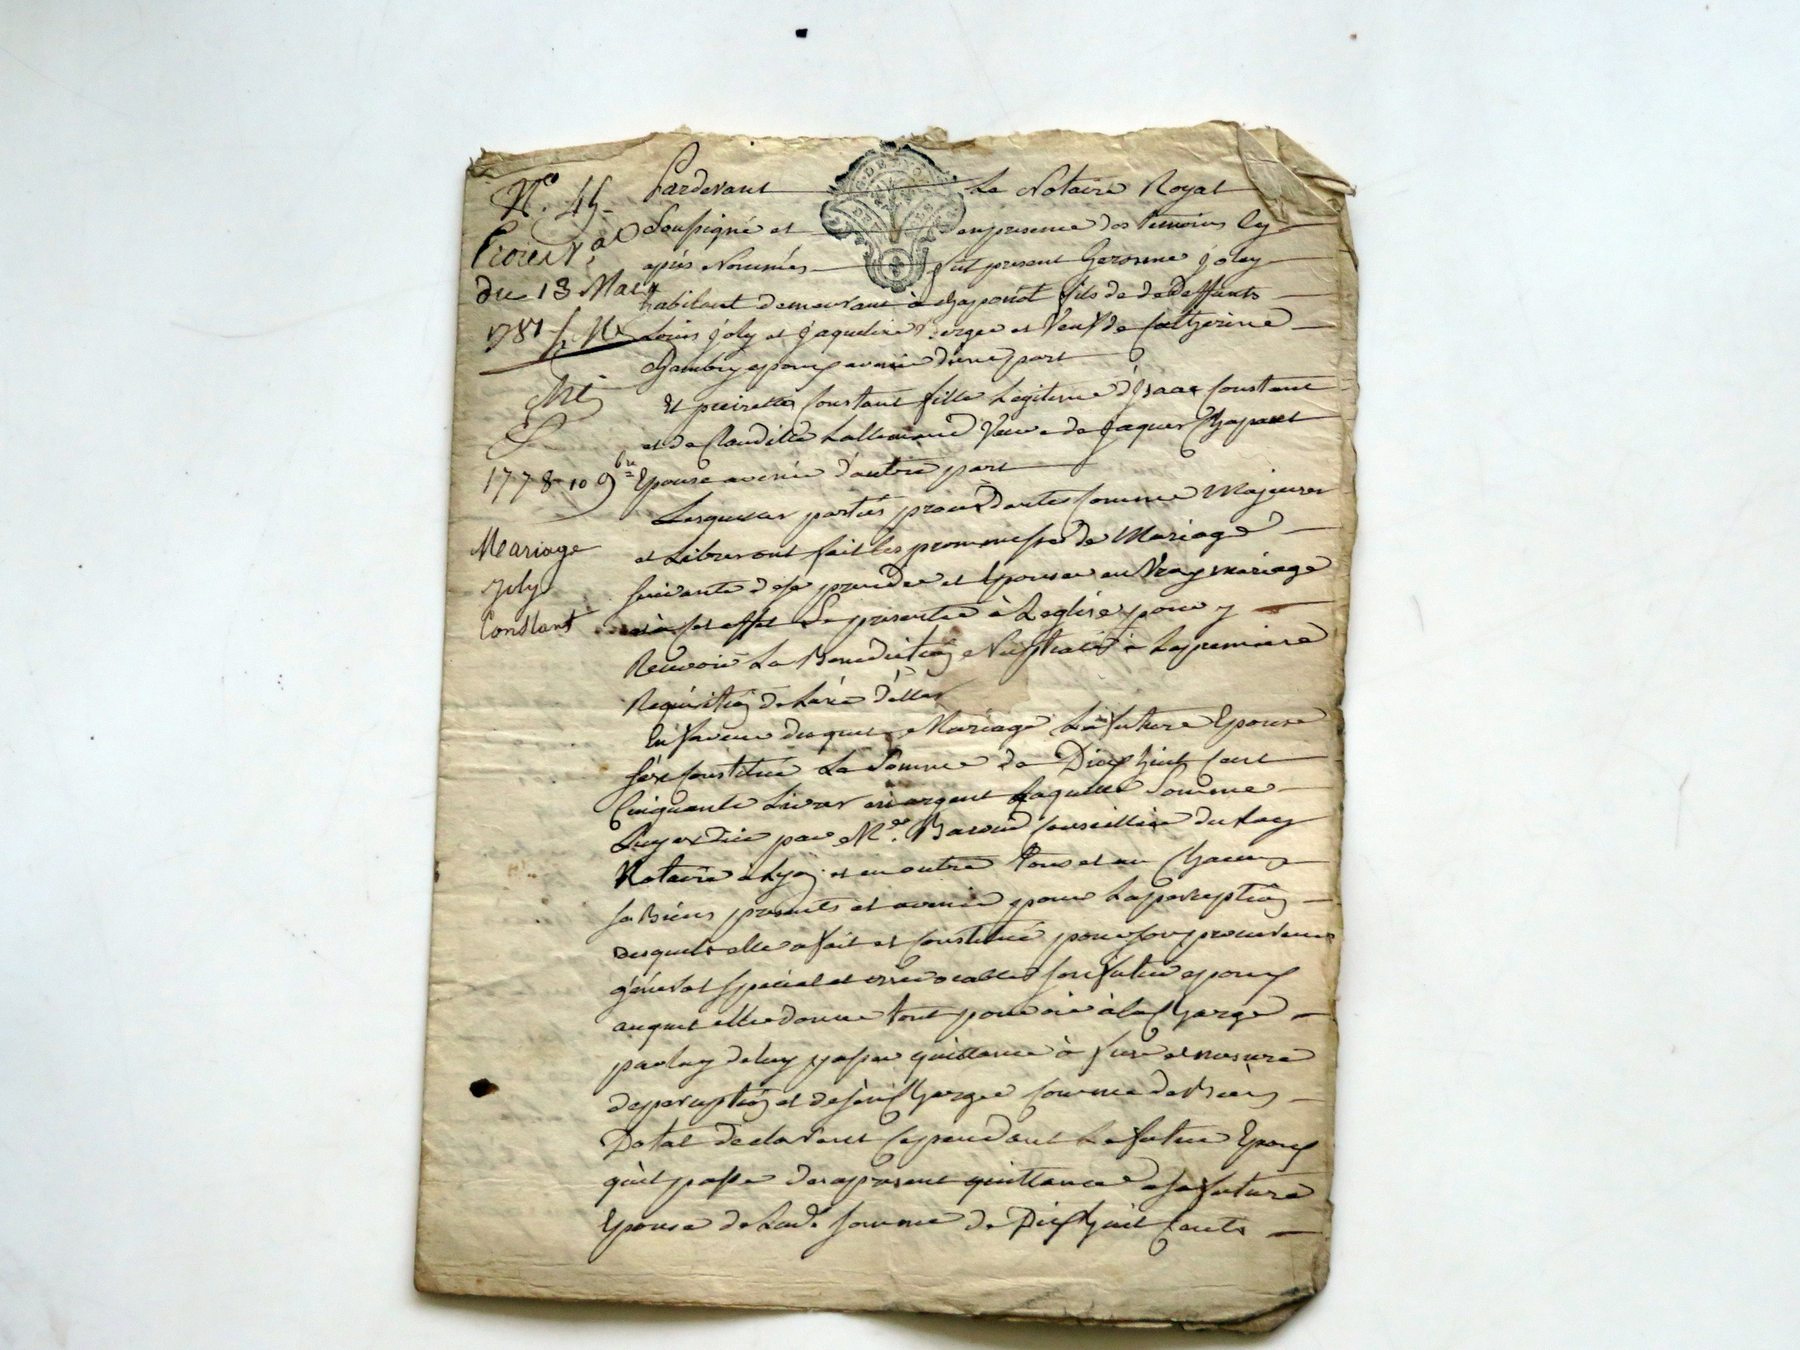 N.º 45
du 13 Mars
1778 10 9bre
Mariage
Joly
Constant
Pardevant Le Notaire Royal
Soussigné et en presence des temoins Cy
après Nommés fut present Geronne joly
habitant demeurant à chaponot fils de deffunts
Louis joly et jaqueline et Veuf de Catherine
epoux avenir d'une part
Et pierrette Constant fille Legitime d'jsaac Constant
et de Claudine Lallemand Veuve de jaques
Epouse avenir d'autre part
Lesquelles parties procedantes comme Majeures
et Libres ont fait les promesses de Mariage
suivantes de se prendre et Epouser en Vray mariage
et à cet effet Se presenter à Leglise pour y
Recevoir La Benediction Nuptiale à La premiere
Requisition de L'une d'elles
En faveur duquel Mariage La future Epouse
se Constitue La Somme de Dix huit Cent
Cinquante Livres en argent Laquelle Somme
Luy est düe par Mre. Baroud Conseiller du Roy
Notaire a Lyon et en outre tous et un Chacuns
ses Biens presents et avenir pour La perception
desquels elle a fait et Constitué pour son procureur
général spécial et irrévocable son futur epoux
auquel elle donne tout pouvoir à la Charge
par luy de luy passer quittance à fure et mesure
de perception et de s'en Charger comme de Biens
Dotal declarant Cependant Le futur Epoux
qu'il passe des apresent quittance a sa future
Epouse de Lade. somme de Dix huit Cents